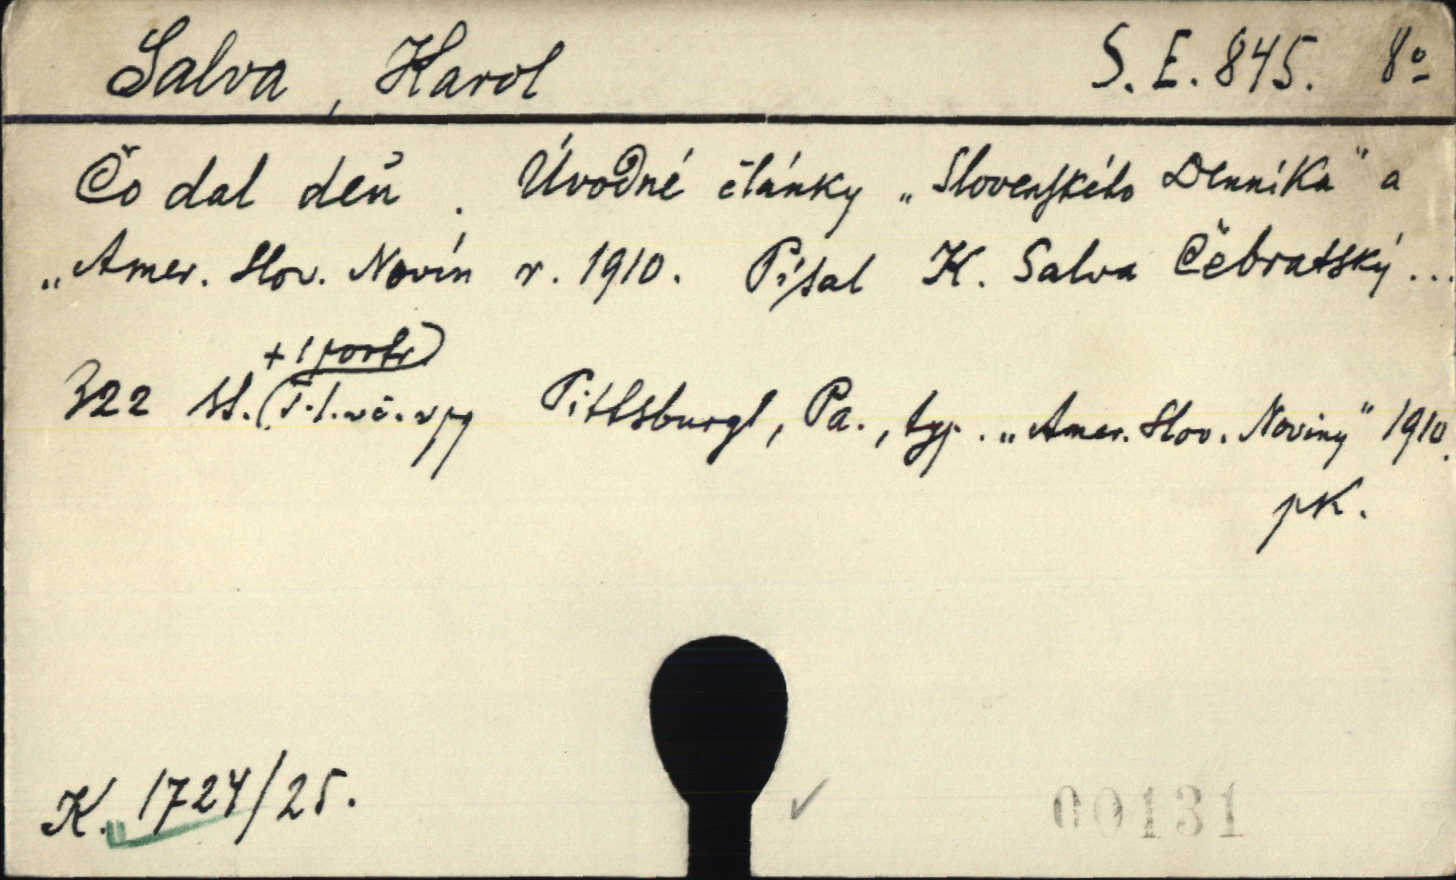 Salva, Karol S. E. 845. 8º
Čo dal deň. Úvodné články „Slovenského Denníka" a
„Amer. Slov. Novín r. 1910. Písal K. Salva Čebratský...
+ 1 portr
322 st. Pittsburgh, Pa., typ. „Amer. Slov. Noviny" 1910.
pK.
K. 1724/25.
00131